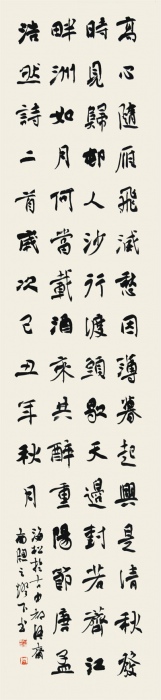 高心隨雁飛滅愁因薄暮起興是清秋發
時見歸邨人沙行渡頭歇天邊樹若薺江
畔洲如月何當載酒來共醉重陽節唐孟
浩然詩二首歲次己丑年秋月